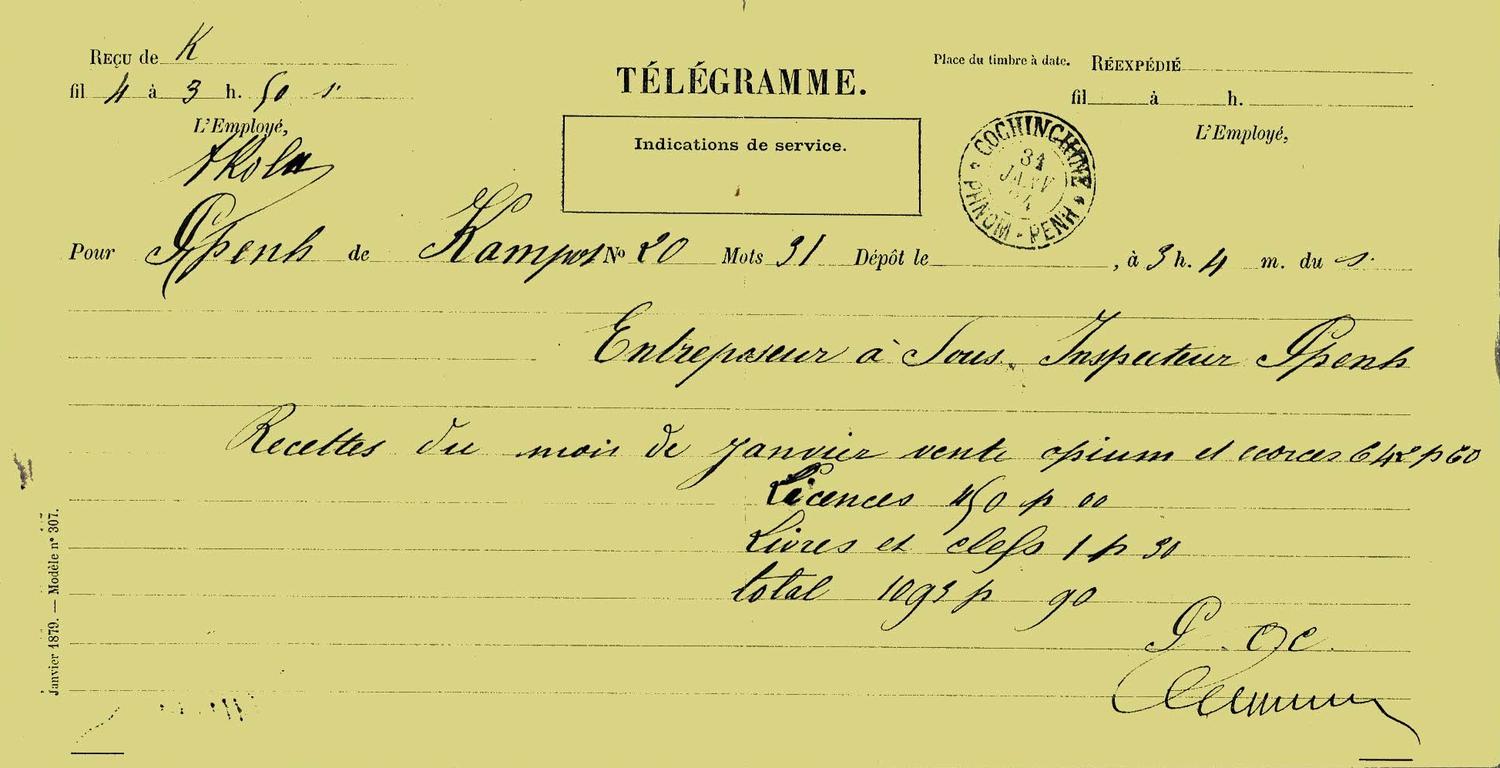 Reçu de K
fil 4 à 3 h. 50 s.
L'Employé,
TÉLÉGRAMME.
Indications de service.
Place du timbre à date. RÉEXPÉDIÉ
fil à h.
L'Employé,
COCHINCHINE
31
JANV
PHNOM-PENH
Pour Ppenh de Kampot No 20 Mots 31 Dépôt le , à 3 h. 4 m. du s.
Entreposeur à Sous. Inspecteur Ppenh
Recettes du mois de janvier vente opium et ecorces 642 p 60
Licences 450 p 00
Livres et clefs 1 p 30
total 1093 p 90
Janvier 1879. — Modèle n° 307.